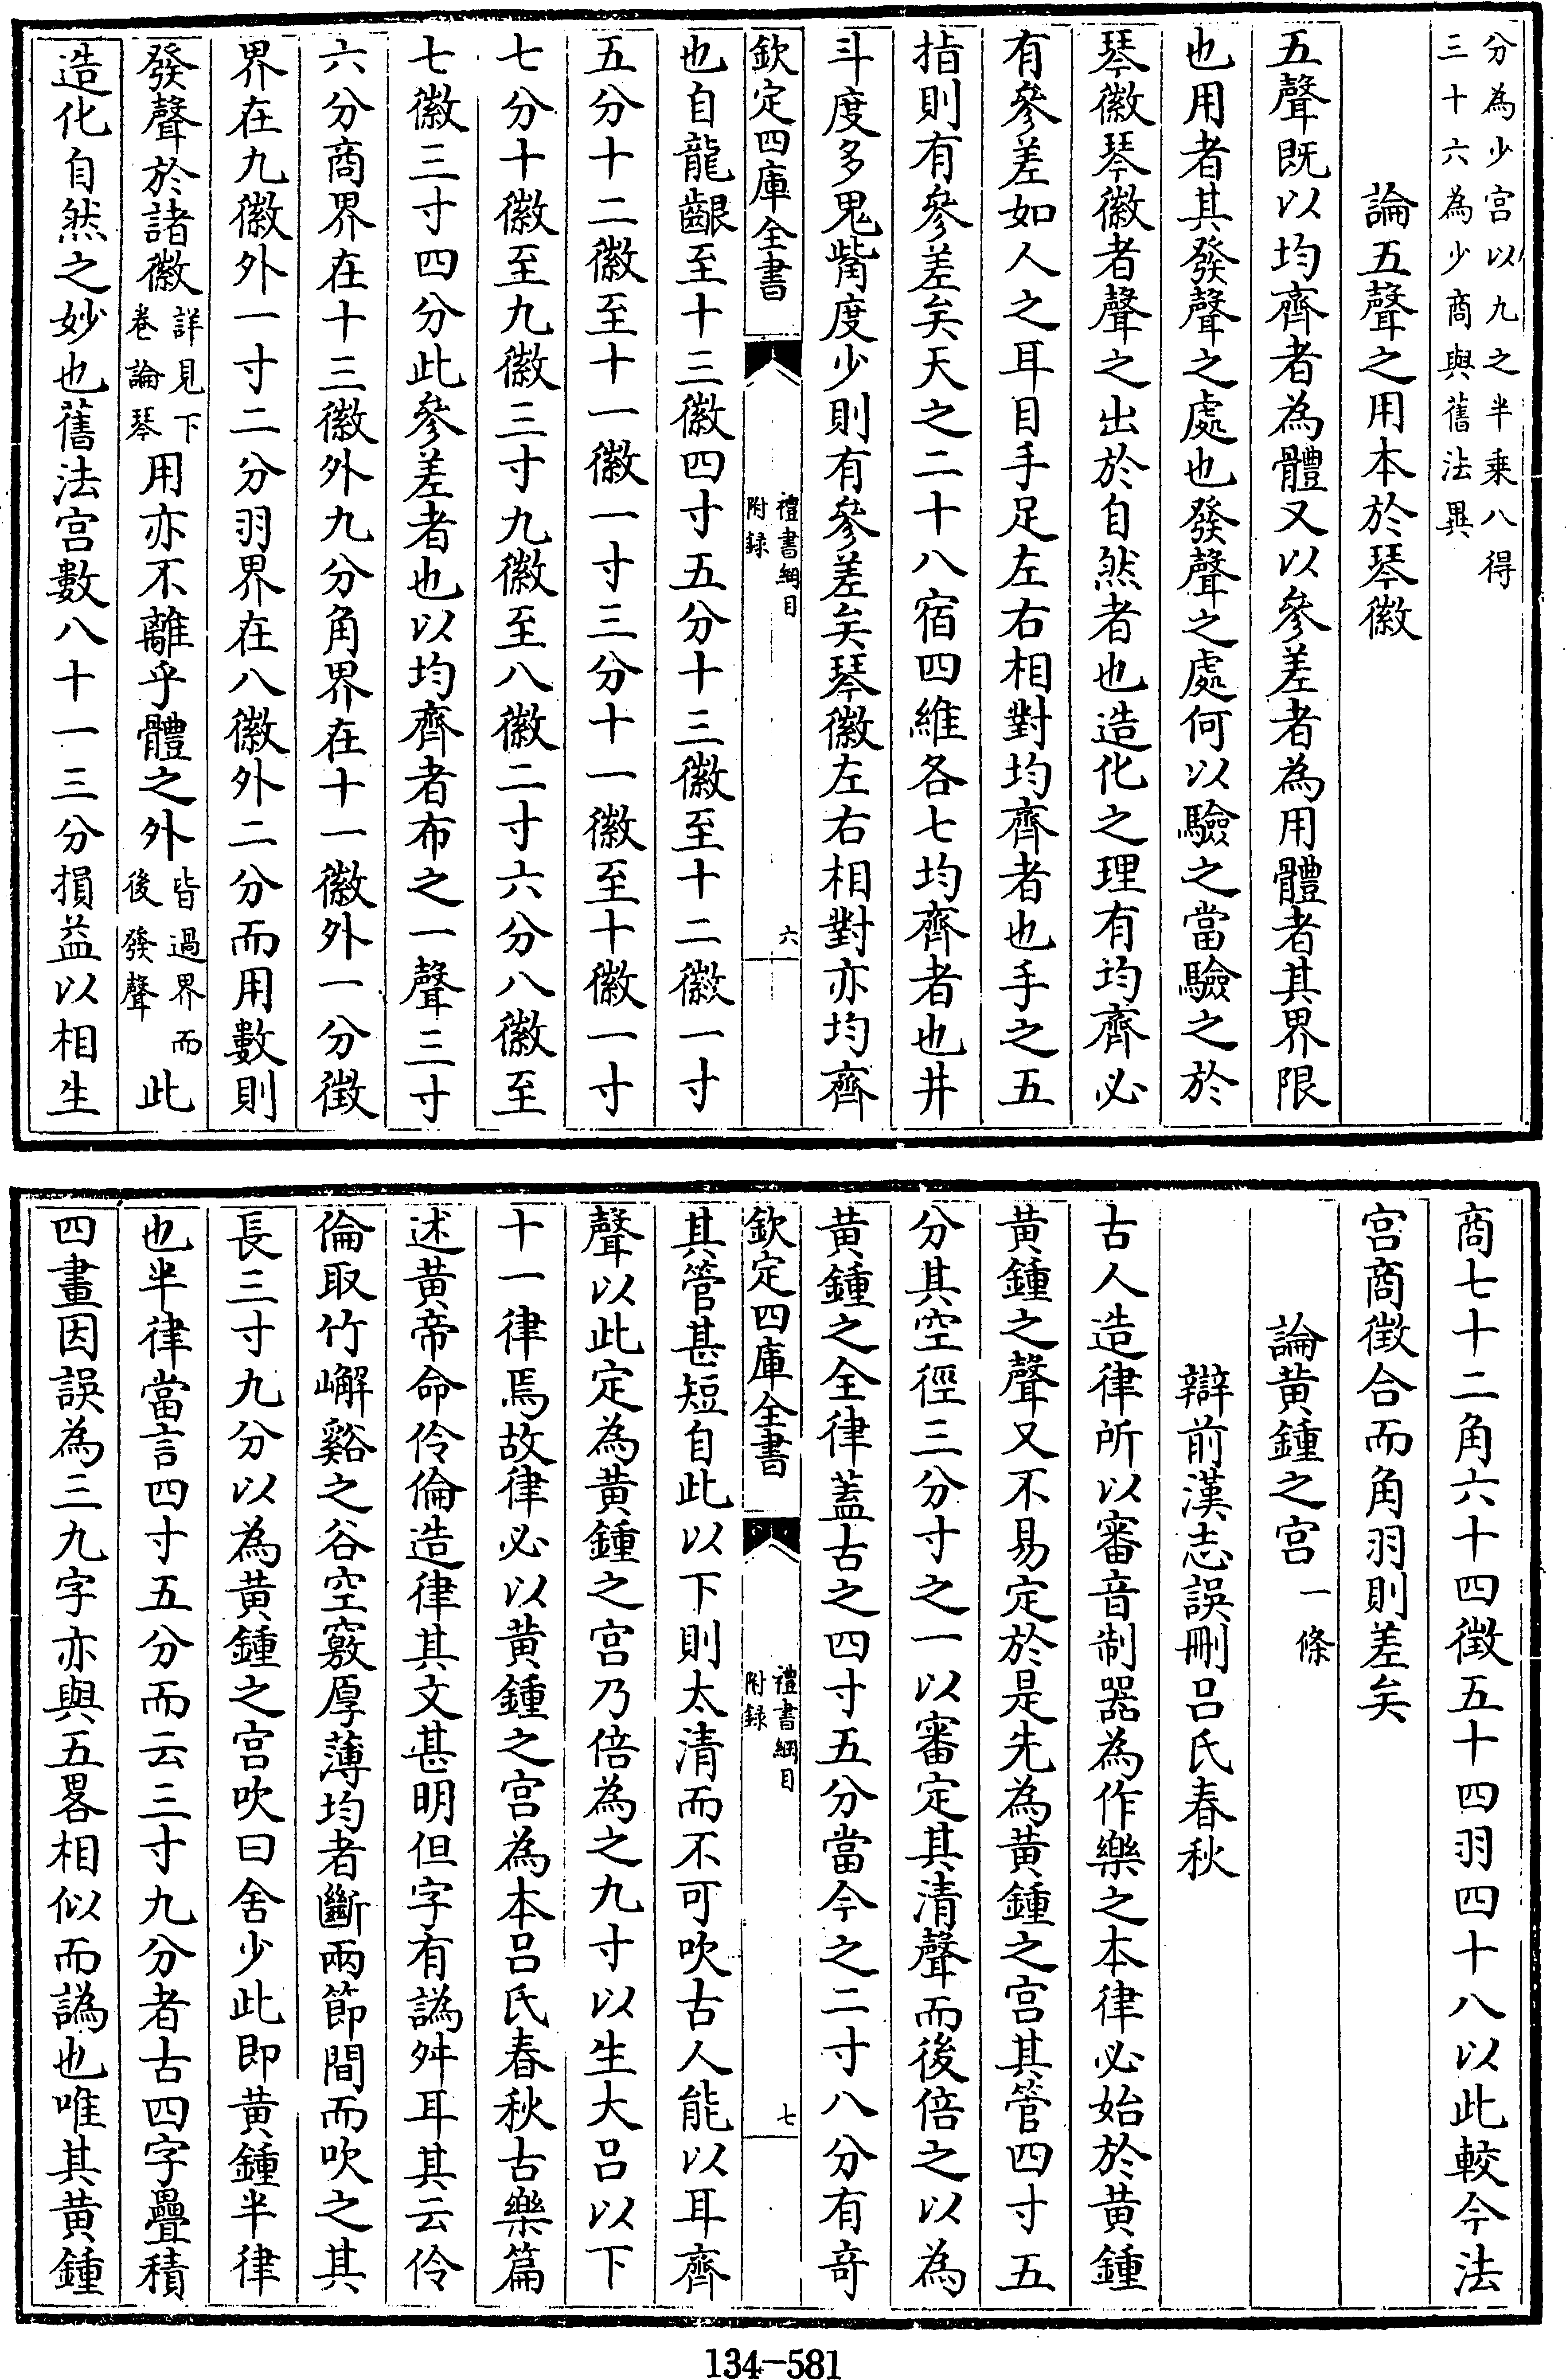 分為少宫以九之半乘八得
三十六為少商與舊法異
論五聲之用本於琴徽
五聲既以均齊者為體又以參差者為用體者其界限
也用者其發聲之處也發聲之處何以驗之當驗之於
琴徽琴徽者聲之出於自然者也造化之理有均齊必
有參差如人之耳目手足左右相對均齊者也手之五
指則有參差矣天之二十八宿四維各七均齊者也井
斗度多鬼觜度少則有參差矣琴徽左右相對亦均齊
欽定四庫全書
禮書綱目
附録
六
也自龍齦至十三徽四寸五分十三徽至十二徽一寸
五分十二徽至十一徽一寸三分十一徽至十徽一寸
七分十徽至九徽三寸九徽至八徽二寸六分八徽至
七徽三寸四分此參差者也以均齊者布之一聲三寸
六分商界在十三徽外九分角界在十一徽外一分徴
界在九徽外一寸二分羽界在八徽外二分而用數則
發聲於諸徽
詳見下
卷論琴
用亦不離乎體之外
皆過界而
後發聲
此
造化自然之妙也舊法宫數八十一三分損益以相生
商七十二角六十四徴五十四羽四十八以此較今法
宫商徴合而角羽則差矣
論黄鍾之宫
一條
辯前漢志誤刪吕氏春秋
古人造律所以審音制器為作樂之本律必始於黄鍾
黄鍾之聲又不易定於是先為黄鍾之宫其管四寸五
分其空徑三分寸之一以審定其清聲而後倍之以為
黄鍾之全律蓋古之四寸五分當今之二寸八分有奇
欽定四庫全書
禮書綱目
附録
七
其管甚短自此以下則太清而不可吹古人能以耳齊
聲以此定為黄鍾之宫乃倍為之九寸以生大吕以下
十一律焉故律必以黄鍾之宫為本吕氏春秋古樂篇
述黄帝命伶倫造律其文甚明但字有譌舛耳其云伶
倫取竹嶰谿之谷空竅厚薄均者斷兩節間而吹之其
長三寸九分以為黄鍾之宫吹曰舍少此即黄鍾半律
也半律當言四寸五分而云三寸九分者古四字疊積
四畫因誤為三九字亦與五畧相似而譌也唯其黄鍾
134-581